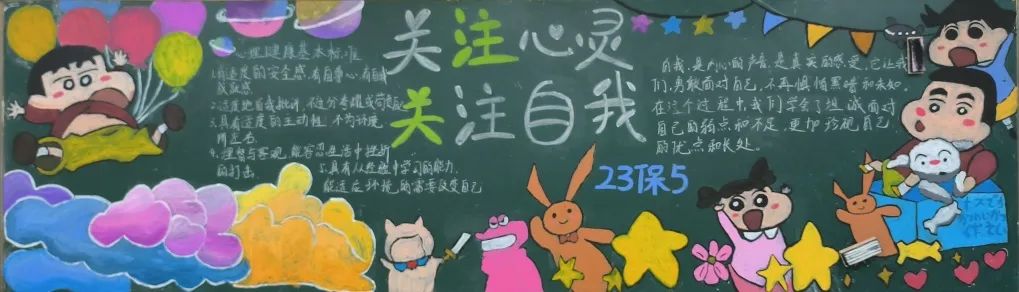 关注心灵
关注自我
心理健康基本标准
1.有适度的安全感,有自尊心,有自我
成就感
2.适度地自我批评,不过分夸耀或苛责自己
3.具有适度的主动性,不为环境
所左右
4.理智与客观,能容忍生活中挫折
的打击
5.具有从经验中学习的能力,
能适应环境的需要改变自己
自我,是内心的声音,是真实的感受,它让我
们,勇敢面对自己,不再惧怕黑暗和未知。
在这个过程中,我们学会了坦诚面对
自己的弱点和不足,更加珍视自己
的优点和长处。
23保5